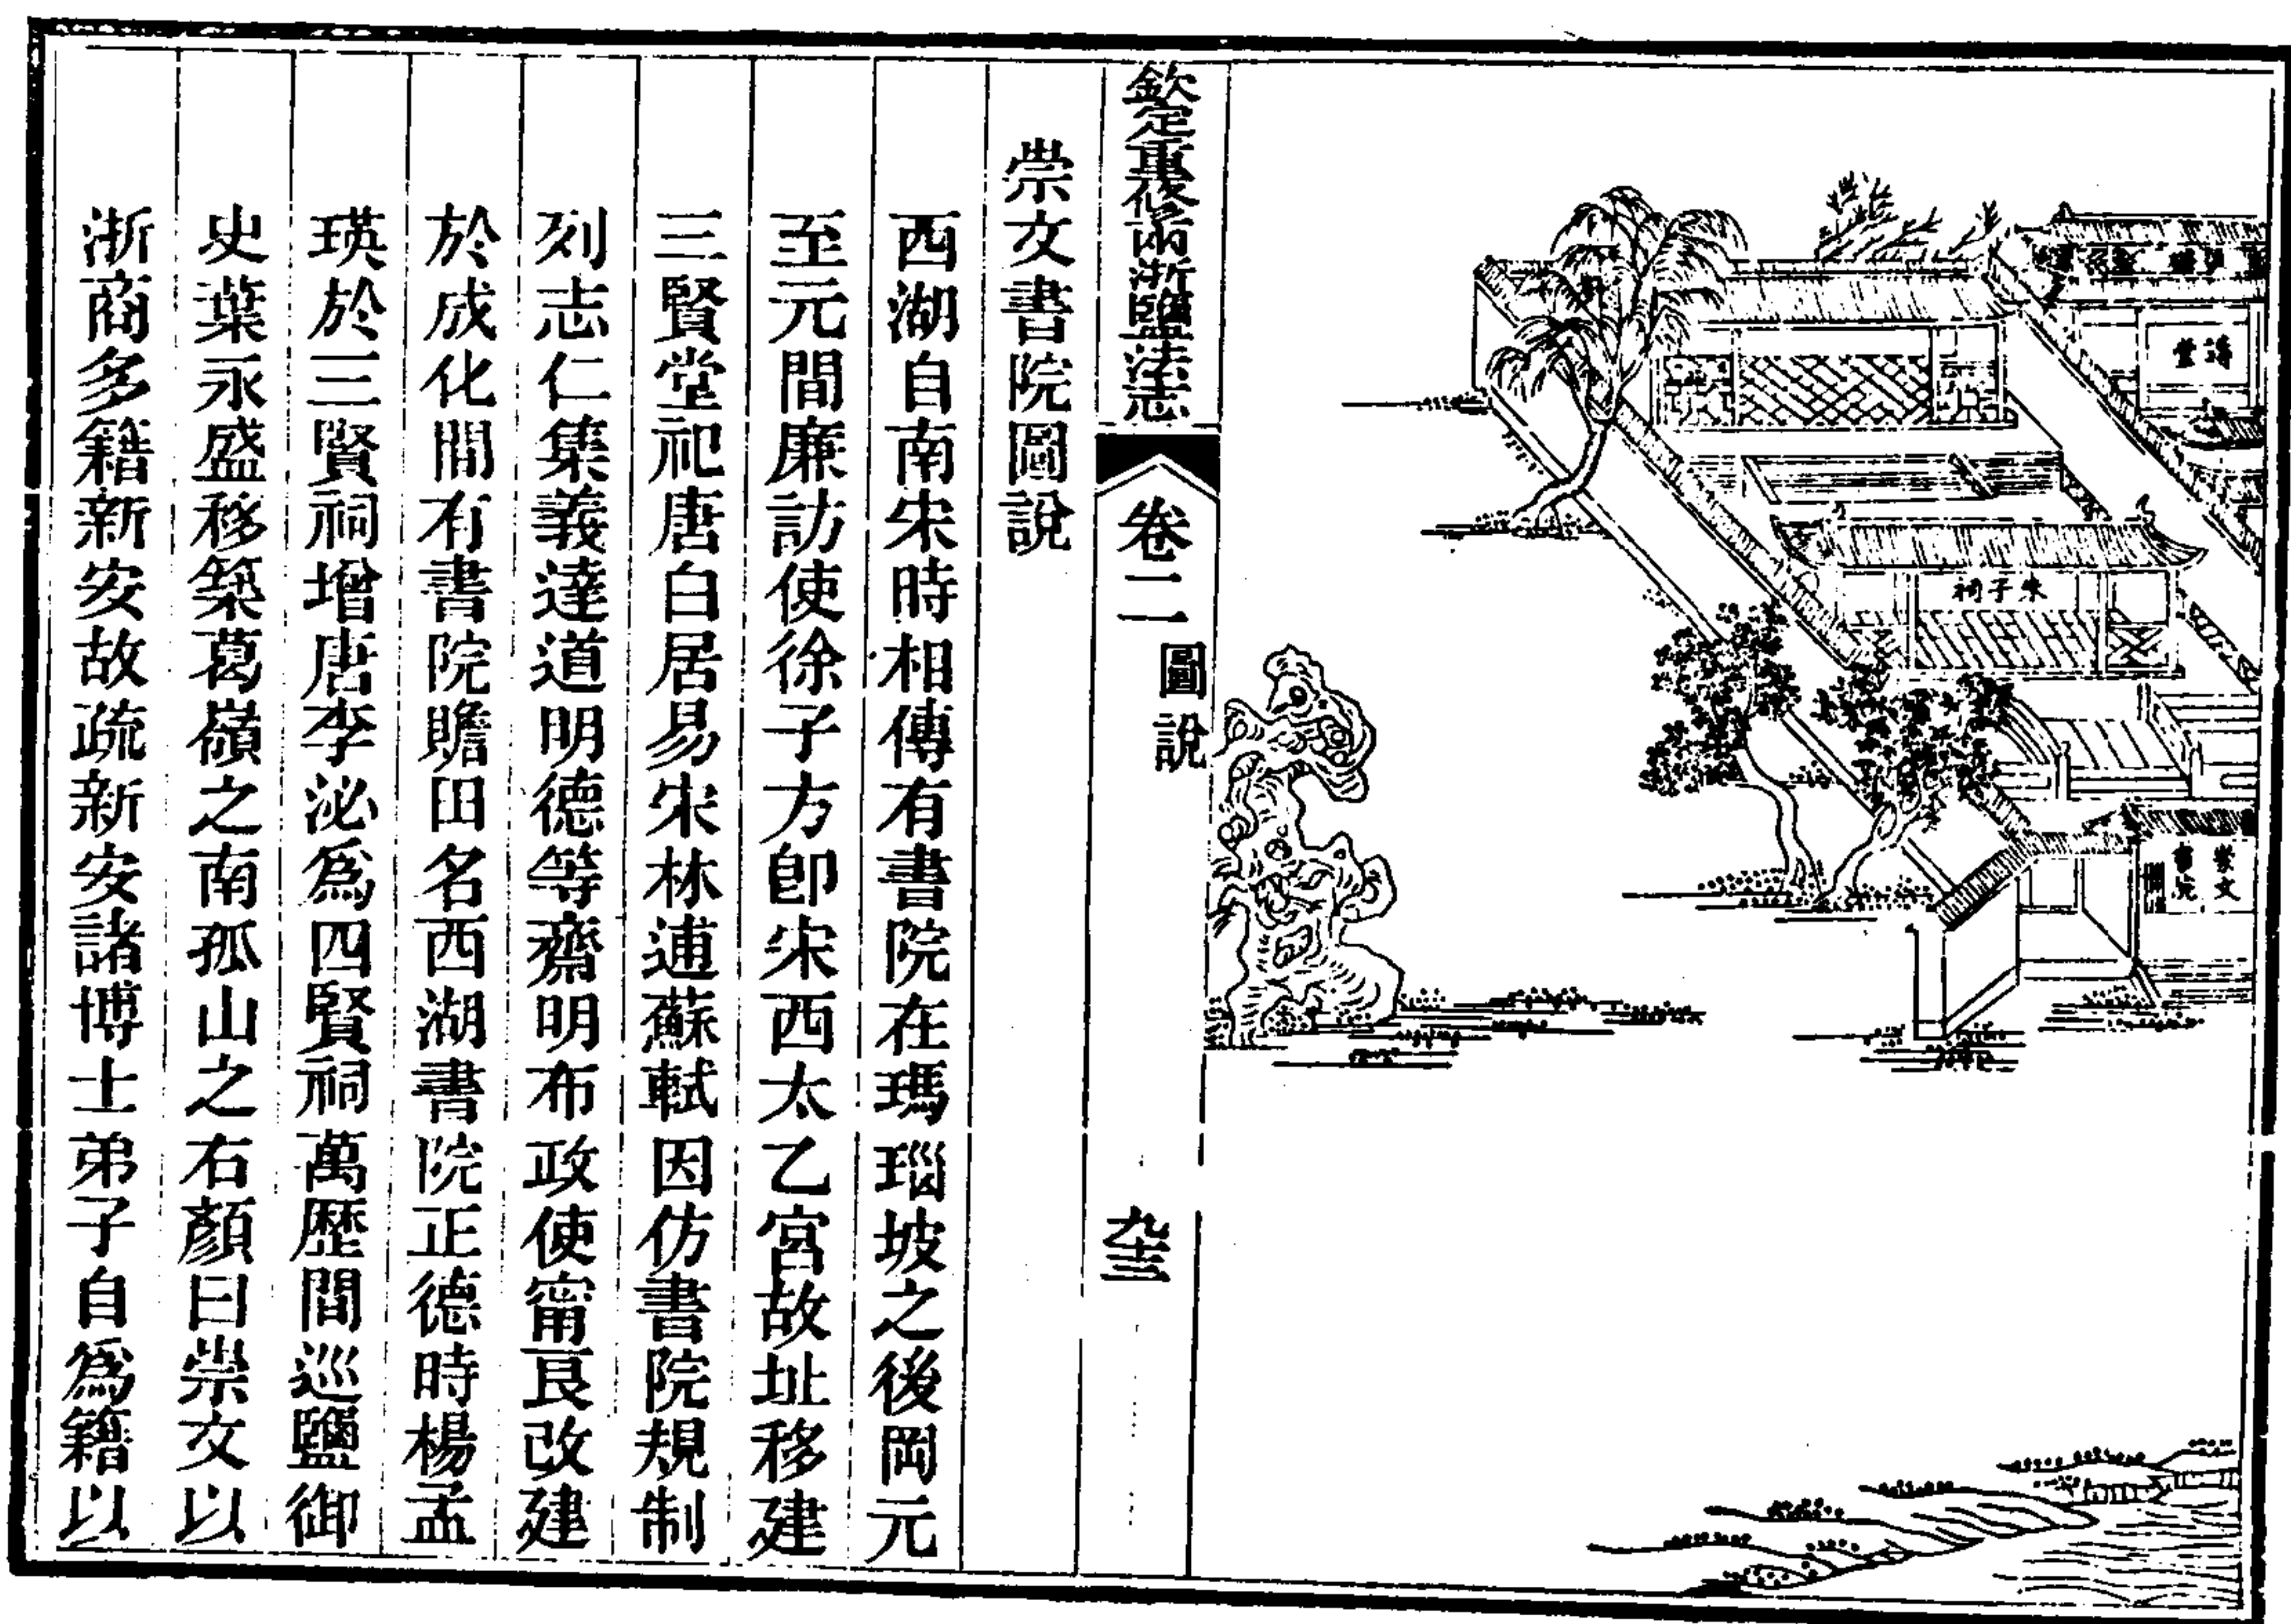 講堂
朱子祠
崇文
書院
欽定重修兩浙鹽法志
卷二
圖說
九十三
崇文書院圖說
西湖自南宋時相傳有書院在瑪瑙坡之後岡元
至元間廉訪使徐子方卽宋西太乙宮故址移建
三賢堂祀唐白居易宋林逋蘇軾因仿書院規制
列志仁集義達道明德等齋明布政使甯良改建
於成化間有書院贍田名西湖書院正德時楊孟
瑛於三賢祠增唐李泌爲四賢祠萬歷間巡鹽御
史葉永盛移築葛嶺之南孤山之右顏曰崇文以
浙商多籍新安故疏新安諸博士弟子自爲籍以